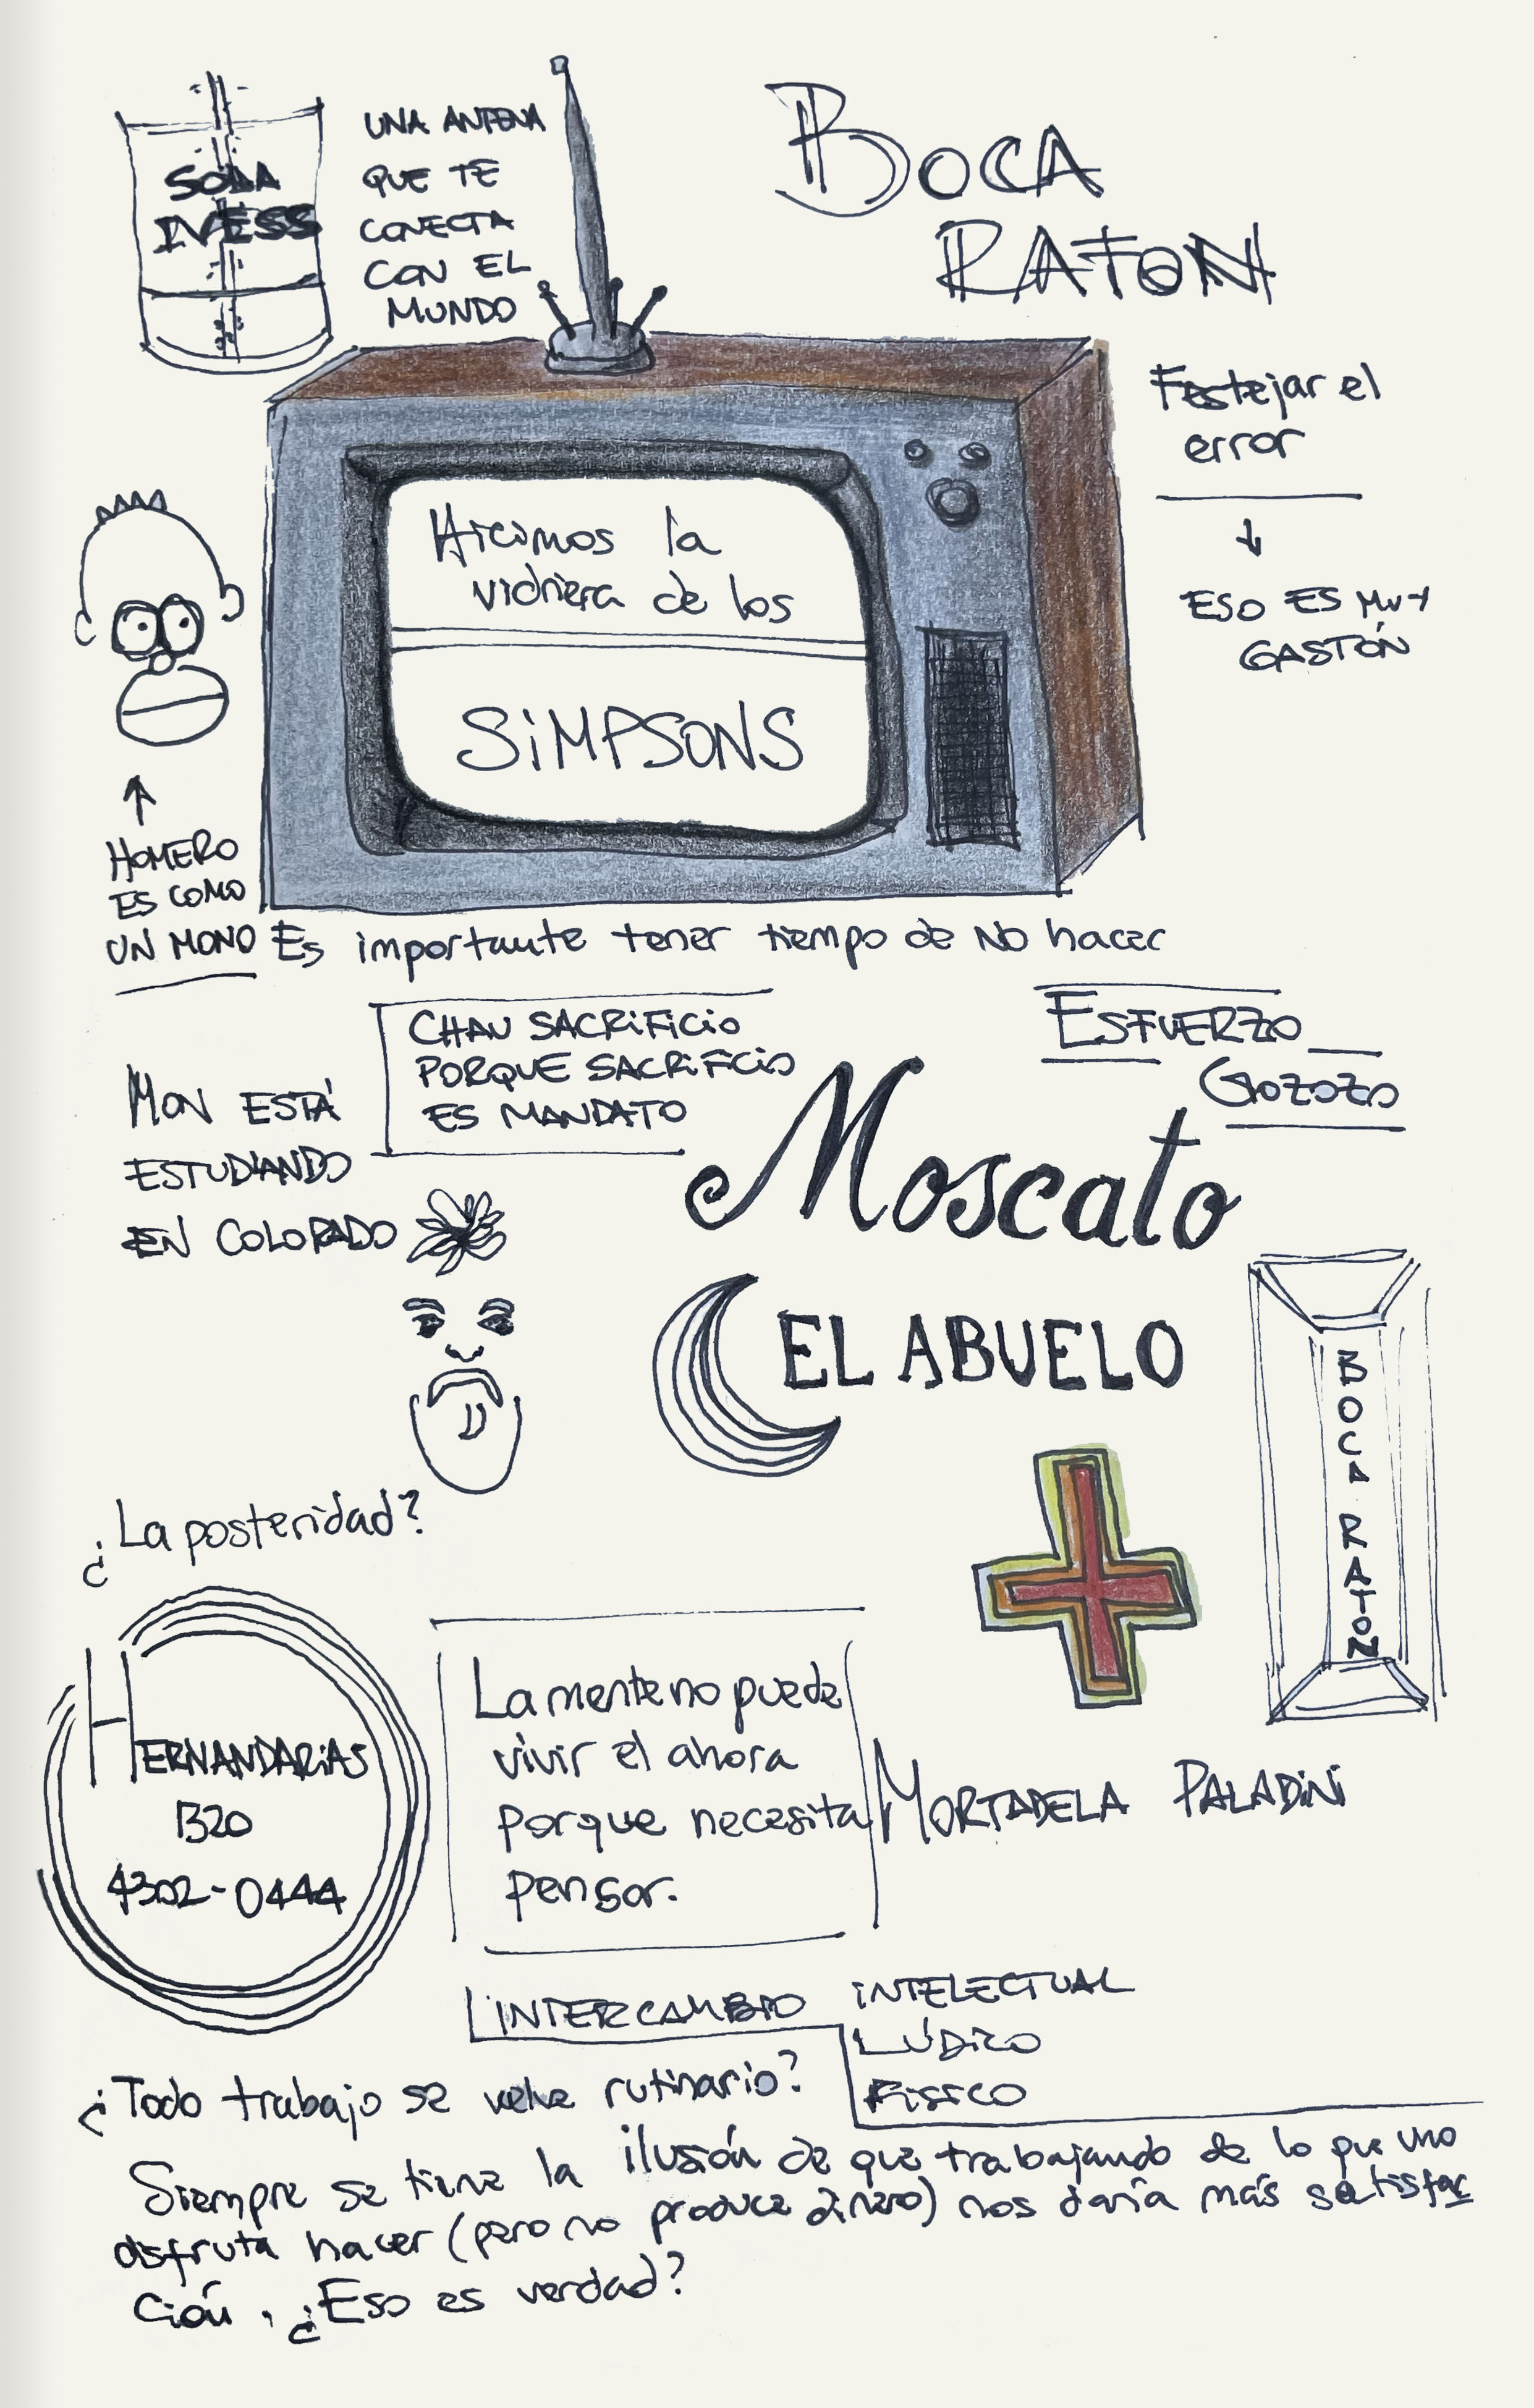 SODA
IVESS
UNA ANTENA
QUE TE
CONECTA
CON EL
MUNDO
BOCA
RATON
Festejar el
error
ESO ES MUY
GASTÓN
Hicimos la
vidriera de los
SiMPSONS
HOMERO
ES COMO
UN MONO
Es importante tener tiempo de NO hacer
CHAU SACRiFiCiO
PORQUE SACRiFiCiO
ES MANDATO
ESFUERZO
GOZOZO
MON ESTÁ
ESTUDIANDO
EN COLORADO
Moscato
EL ABUELO
BOCA RATON
¿La posteridad?
HERNANDARiAS
1320
4302-0444
La mente no puede
vivir el ahora
porque necesita
pensar.
MORTADELA PALADiNi
INTERCAMBIO
iNTELECTUAL
LÚDico
FISICO
¿Todo trabajo se velve rutinario?
Siempre se tiene la ilusión de que trabajando de lo que uno
disfruta hacer (pero no produce dinero) nos daría más satisfac
ción. ¿Eso es verdad?